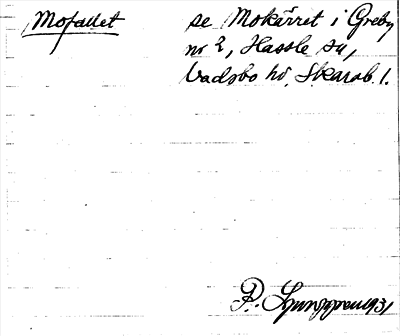 Mofallet se Mokärret i Greby
nr 2, Hassle sn,
Vadsbo hd, Skarab. l.
P. Ljunggren 1931